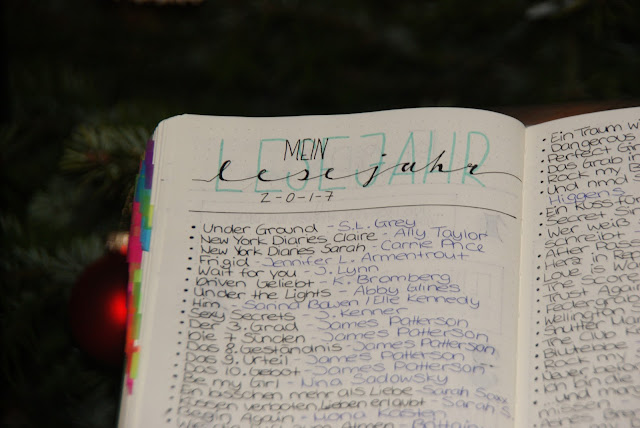 MEIN
LESEJAHR
lesejahr
2-0-1-7
• Under Ground - S.L. Grey
• New York Diaries Claire - Ally Taylor
• New York Diaries Sarah - Carrie Price
• Frigid - Jennifer L. Armentrout
• Wait for you - J. Lynn
• Driven Geliebt - K. Bromberg
• Under the Lights - Abby Glines
• Him - Sarina Bowen / Elle Kennedy
• Sexy Secrets - J. Kenner
• Der 3. Grad - James Patterson
• Die 7 Sünden - James Patterson
• Das 8. Geständnis - James Patterson
• Das 9. Urteil - James Patterson
• Das 10. Gebot - James Patterson
• Be my Girl - Nina Sadowsky
• Ein bisschen mehr als Liebe - Sarah Saxx
verboten Liebe erlaubt - Sarah S
Begin Again - Mona Kasten
• Ein Traum
• Dangerous
• Perfect Girl
• Das Grab
• Rock my
• Und nmd
Higgens
• Ein Kuss für
• Secret Sin
• Wer weiß
schreibt
• After Passi
• Herz in Rep
• Love is Wa
• The Sco
• Trust Again
• Federgrab
• Wellington
• Shutter Ma
• The Club
• Blutebe
• Rock my